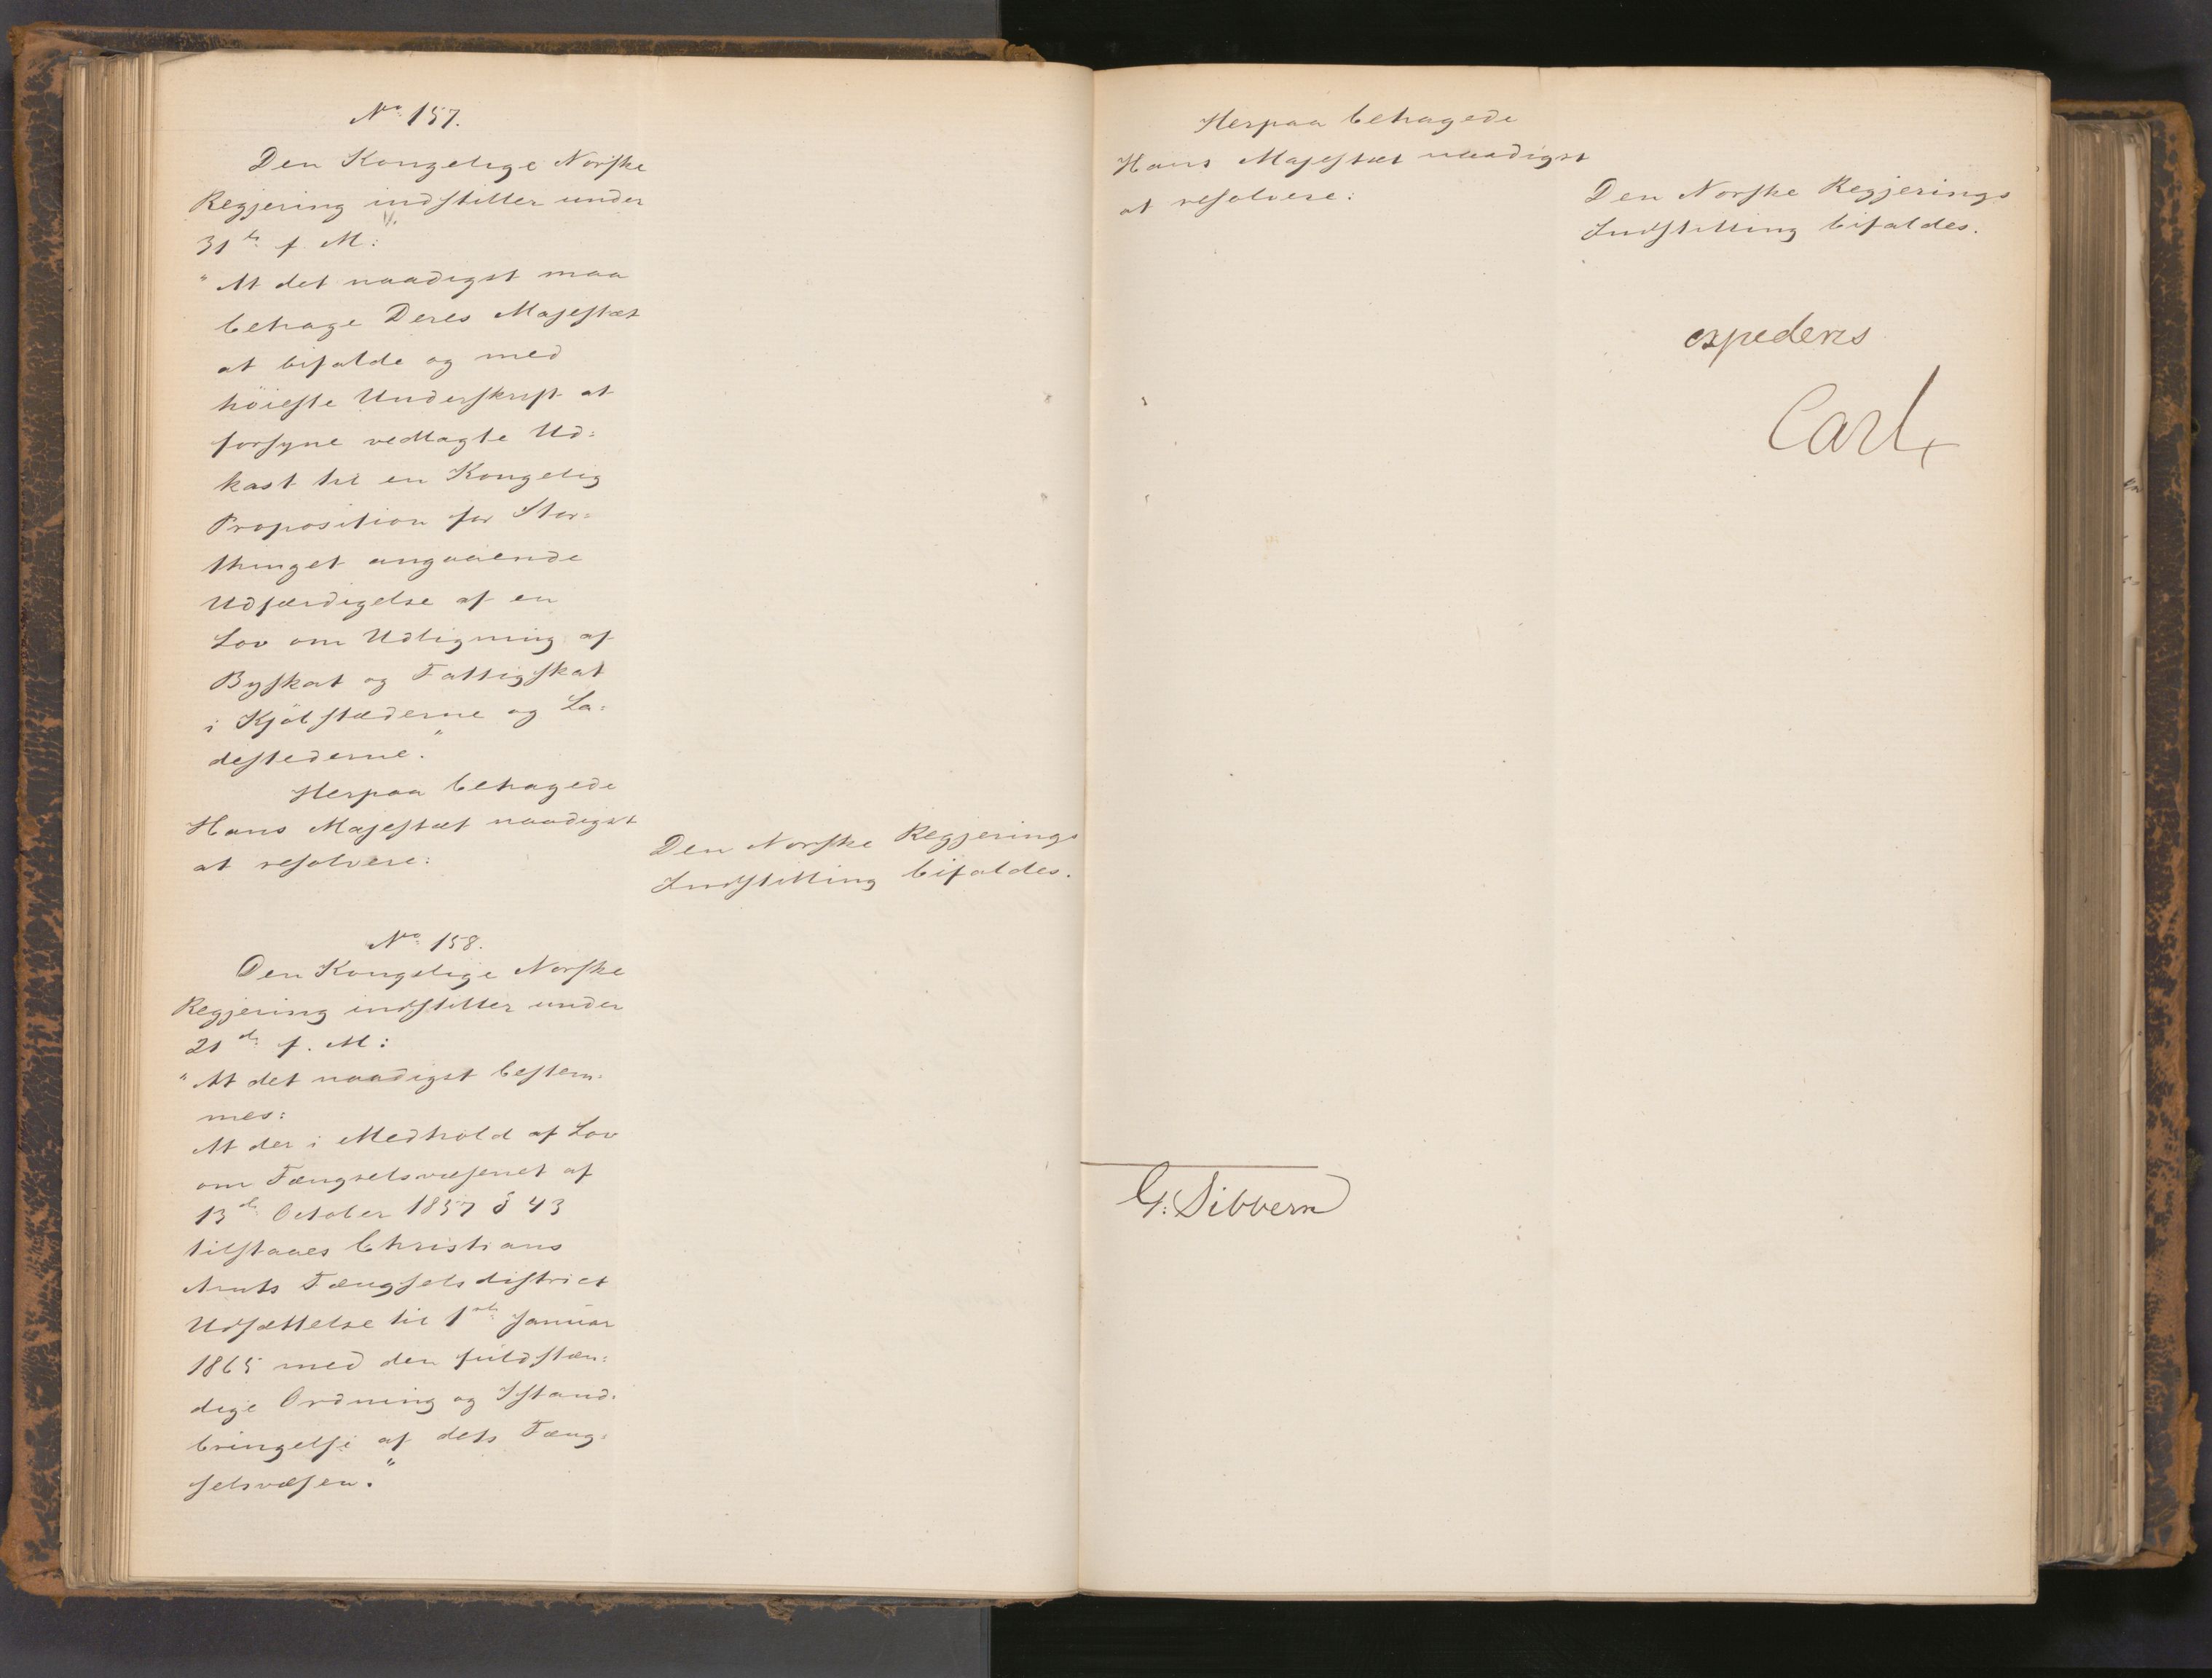 No. 157.
Den Kongelige Norske
Regjering indstiller under
31te f. M:
"At det naadigst maa
behage Deres Majestæt
at bifalde og med
höieste Underskrift at
forsyne vedlagte Ud=
kast til en Kongelig
Proposition for Stor=
thinget angaaende
Udfærdigelse af en
Lov om Udligning af
Byskat og Fattigskat
i Kjöbstæderne og La=
destederne."
Herpaa behagede
Hans Majestæt naadigst
at resolvere:
Den Norske Regjerings
Indstilling bifaldes.
No. 158.
Den Kongelige Norske
Regjering indstiller under
21de f. M:
"At det naadigst bestem=
mes:
At der i Medhold af Lov
om Fængselsvæsenet af
13de October 1857 § 43
tilstaaes Christians
Amts Fængselsdistrict
Udsættelse til 1ste Januar
1865 med den fuldstæn=
dige Ordning og Istand=
bringelse af dets Fæng=
selsvæsen."
Herpaa behagede
Hans Majestæt naadigst
at resolvere:
Den Norske Regjerings
Indstilling bifaldes.
expederes
Carl
G. Sibbern